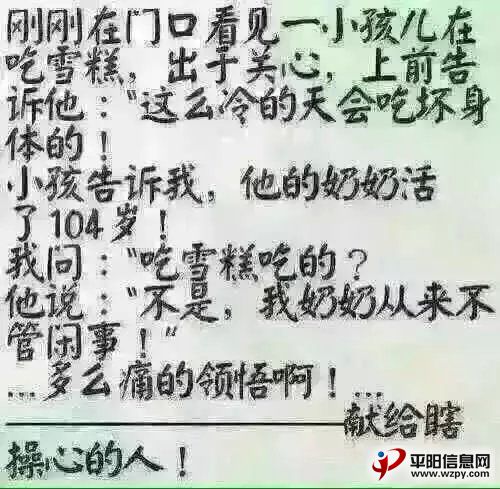 刚刚在门口看见一小孩儿在
吃雪糕，出于关心，上前告
诉他："这么冷的天会吃坏身
体的！
小孩告诉我，他的奶奶活
了104岁！
我问："吃雪糕吃的？
他说："不是，我奶奶从来不
管闲事！"
...多么痛的领悟啊！...
————————献给瞎
操心的人！
平阳信息网
www.wzpy.com